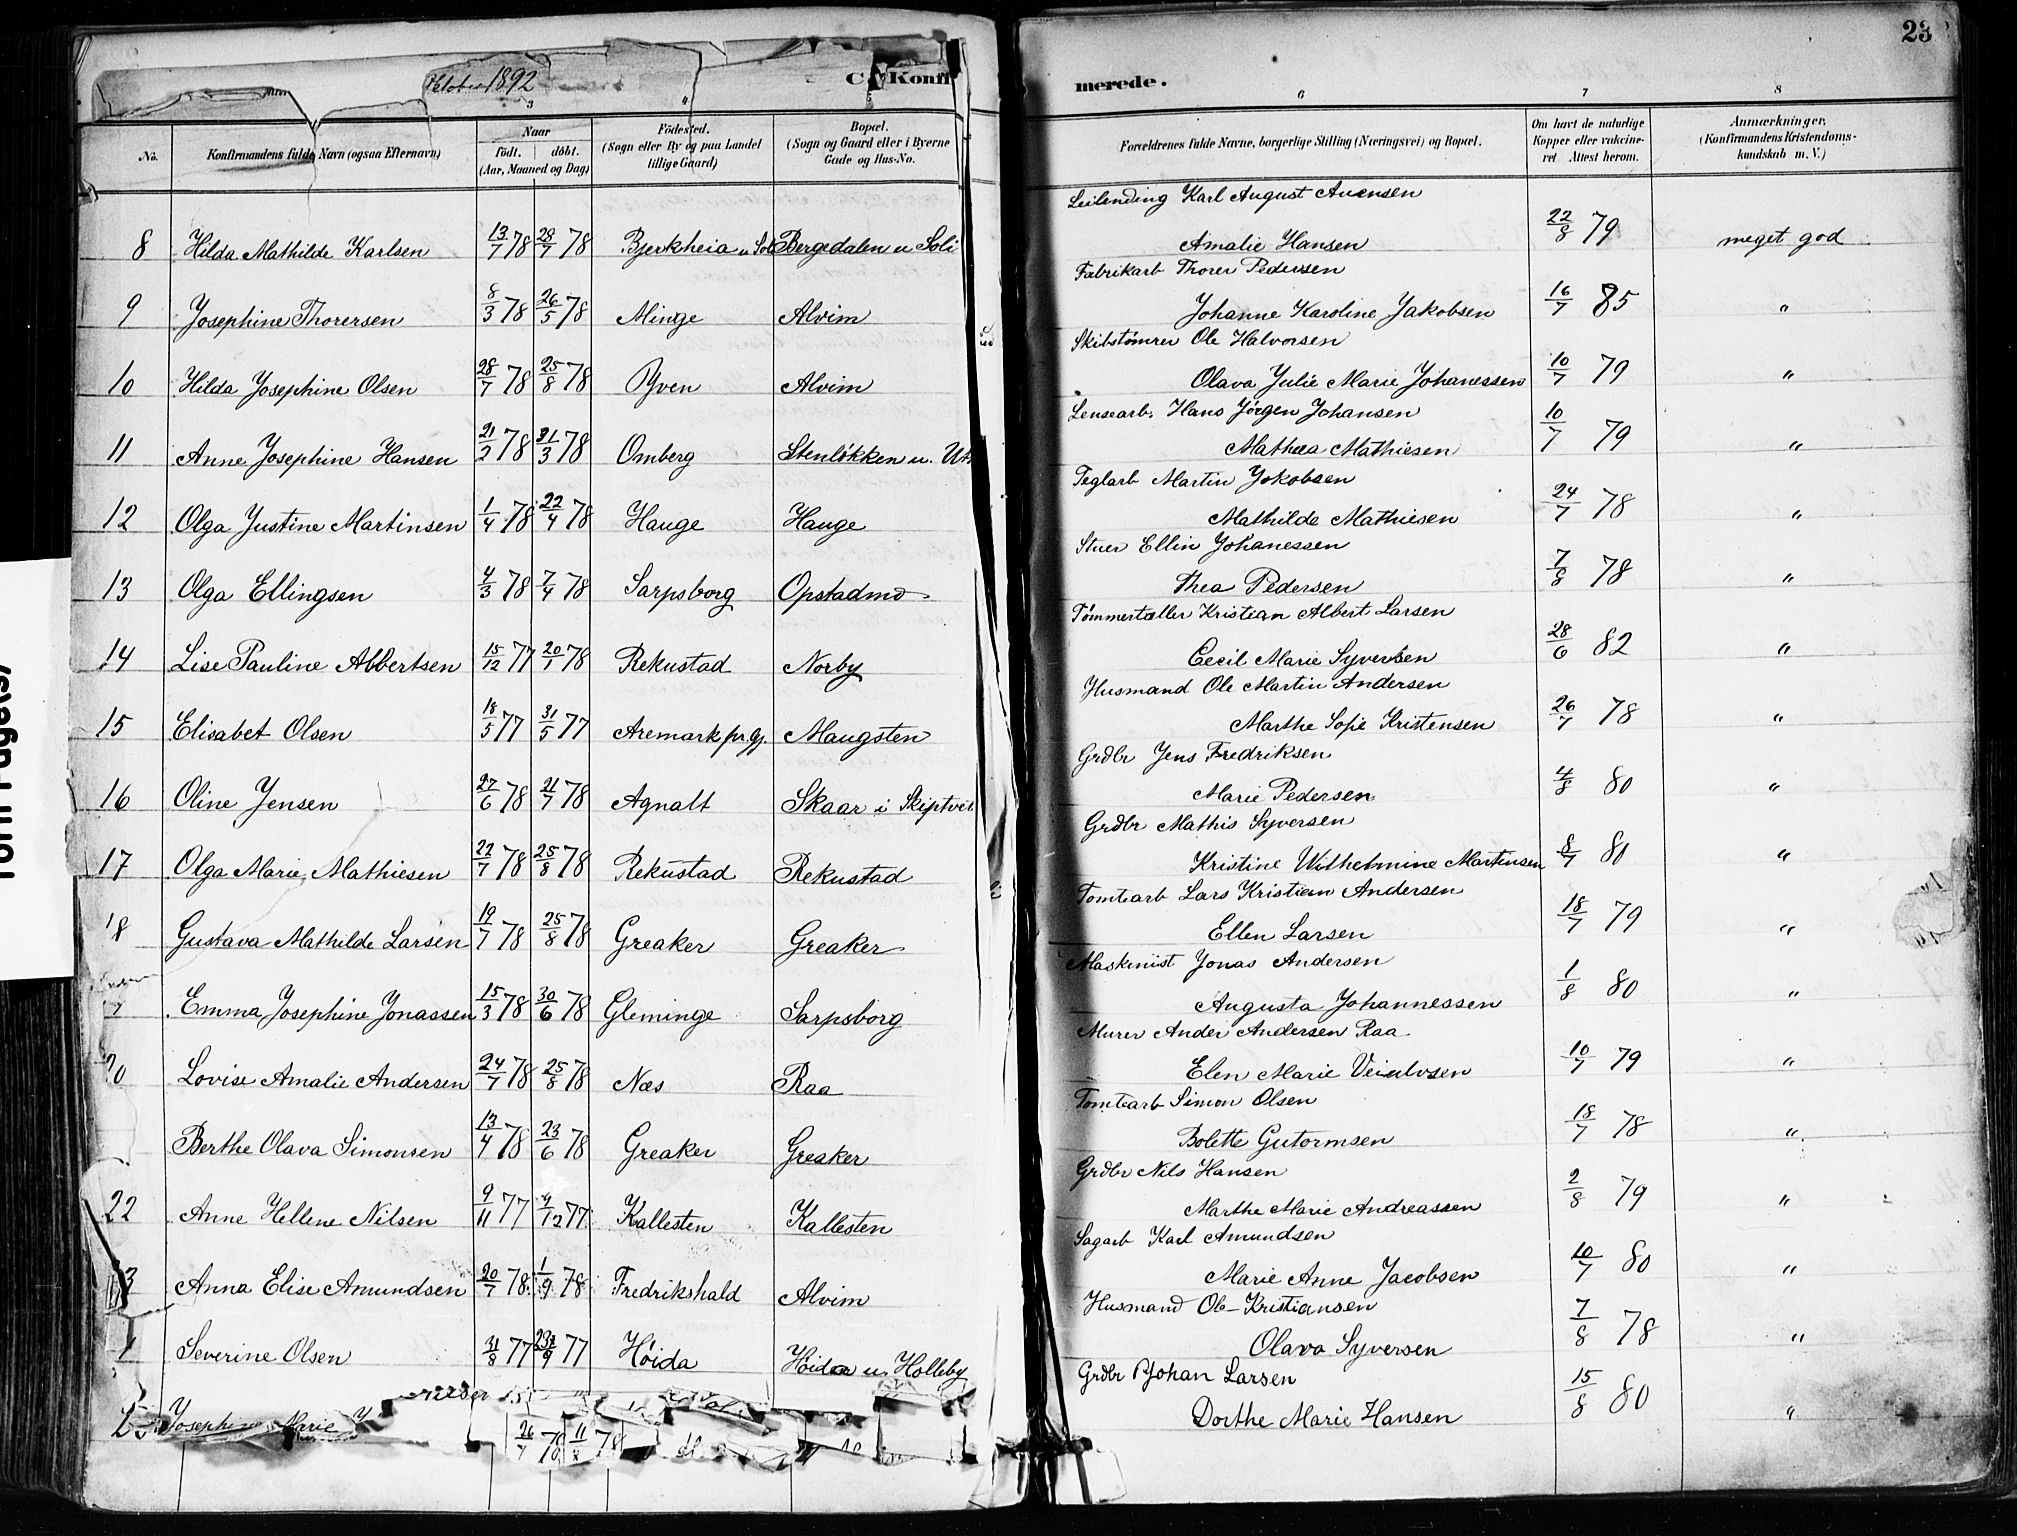 23
Oktober 1892
C. Konfir
merede.
3 4 5 6 7 8
No. Konfirmandens fulde Navn (ogsaa Efternavn) Naar født. døbt. (Aar, Maaned og Dag) Fødested. (Sogn eller By og paa Landet tillige Gaard) Bopæl. (Sogn og Gaard eller i Byerne Gade og Hus-No.
Forældrenes fulde Navne, borgerlige Stilling (Næringsvei) og Bopæl. Om havt de naturlige Kopper eller vakcineret Attest herom. Anmærkninger. (Konfirmandens Kristendomskundskab m. V.)
Leilending Karl August Auensen
8 Hilda Mathilde Karlsen 13/7 78 28/7 78 Bjerkheia u Soli Bergedalen u Soli Amalie Hansen 22/8 79 meget god
Fabrikarb Thorer Pedersen
9 Josephine Thorersen 8/3 78 26/5 78 Minge Alvim Johanne Karoline Jakobsen 16/7 85 "
Skibstømrer Ole Halvorsen
10 Hilda Josephine Olsen 28/7 78 25/8 78 Yven Alvim Olava Julie Marie Johanessen 10/7 79 "
Lensearb. Hans Jørgen Johansen
11 Anne Josephine Hansen 21/2 78 31/3 78 Omberg Stenløkken u. Mathea Mathiesen 10/7 79 "
Teglarb Martin Jakobsen
12 Olga Justine Martinsen 1/4 78 22/4 78 Hauge Hauge Mathilde Mathiesen 24/7 78 "
Stuer Ellin Johanessen
13 Olga Ellingsen 4/3 78 7/4 78 Sarpsborg Opstadmo Thea Pedersen 7/8 78 "
Tømmertæller Kristian Albert Larsen
14 Lise Pauline Albertsen 15/12 77 20/1 78 Rekustad Norby Cecil Marie Syversen 28/6 82 "
Husmand Ole Martin Andersen
15 Elisabet Olsen 18/5 77 31/5 77 Aremark pr.gj. Maugsten Marthe Sofie Kristensen 26/7 78 "
Grdbr Jens Fredriksen
16 Oline Jensen 27/6 78 21/7 78 Agnalt Skaar i Skiptvet Marie Pedersen 4/8 80 "
Grdbr Mathis Syversen
17 Olga Marie Mathiesen 22/7 78 25/8 78 Rekustad Rekustad Kristine Wilhelmine Martinsen 8/7 80 "
Tomtearb Lars Kristian Andersen
18 Gustava Mathilde Larsen 19/7 78 25/8 78 Greaker Greaker Ellen Larsen 18/7 79 "
Maskinist Jonas Andersen
Emma Josephine Jonassen 15/3 78 30/6 78 Gleminge Sarpsborg Augusta Johannessen 1/8 80 "
Murer Ander Andersen Raa
20 Lovise Amalie Andersen 24/7 78 25/8 78 Næs Raa Elen Marie 10/7 79 "
Tomtearb Simon Olsen
Berthe Olava Simonsen 13/4 78 23/6 78 Greaker Greaker Bolette Gutormsen 18/7 78 "
Grdbr Nils Hansen
22 Anne Hellene Nilsen 9/11 77 9/12 77 Kallesten Kallesten Marthe Marie Andreassen 2/8 79 "
Sagarb Karl Amundsen
3 Anna Elise Amundsen 20/7 78 1/9 78 Fredrikshald Alvim Marie Anne Jacobsen 10/7 80 "
Husmand Ole Kristiansen
Severine Olsen 31/8 77 77 Høida Høida u. Holleby Olava Syversen 7/8 78 "
Grdbr Johan Larsen
Josephine Marie 26/7 78 11/8 78 Dorthe Marie Hansen 15/8 80 "